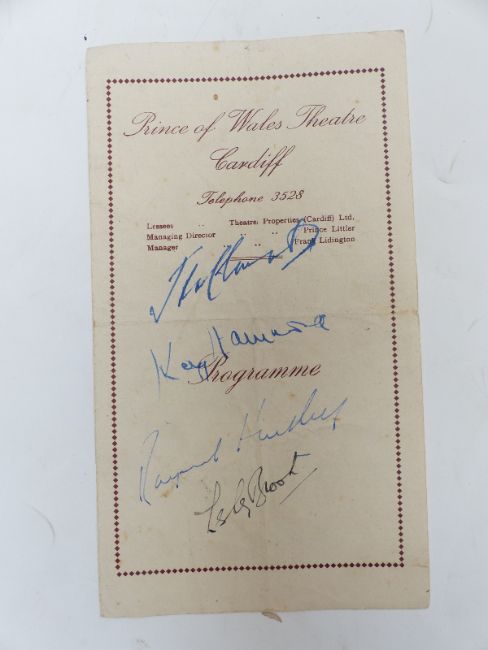 Prince of Wales Theatre
Cardiff
Telephone 3528
Lessees .. Theatre Properties (Cardiff) Ltd.
Managing Director .. .. .. Prince Littler
Manager .. .. .. Frank Lidington
Kay Hammond
Programme
Raymond Huntley
Lesley Brook